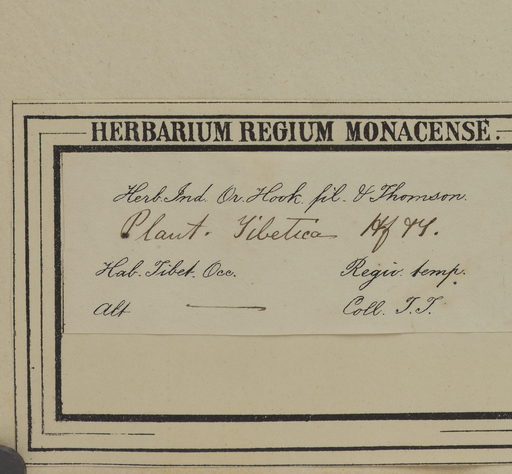 HERBARIUM REGIUM MONACENSE.
Herb. Ind. Or. Hook. fil. & Thomson.
Plant. Tibetica Hf &T.
Hab. Tibet. Occ. Regio. temp.
Alt — Coll. T.T.